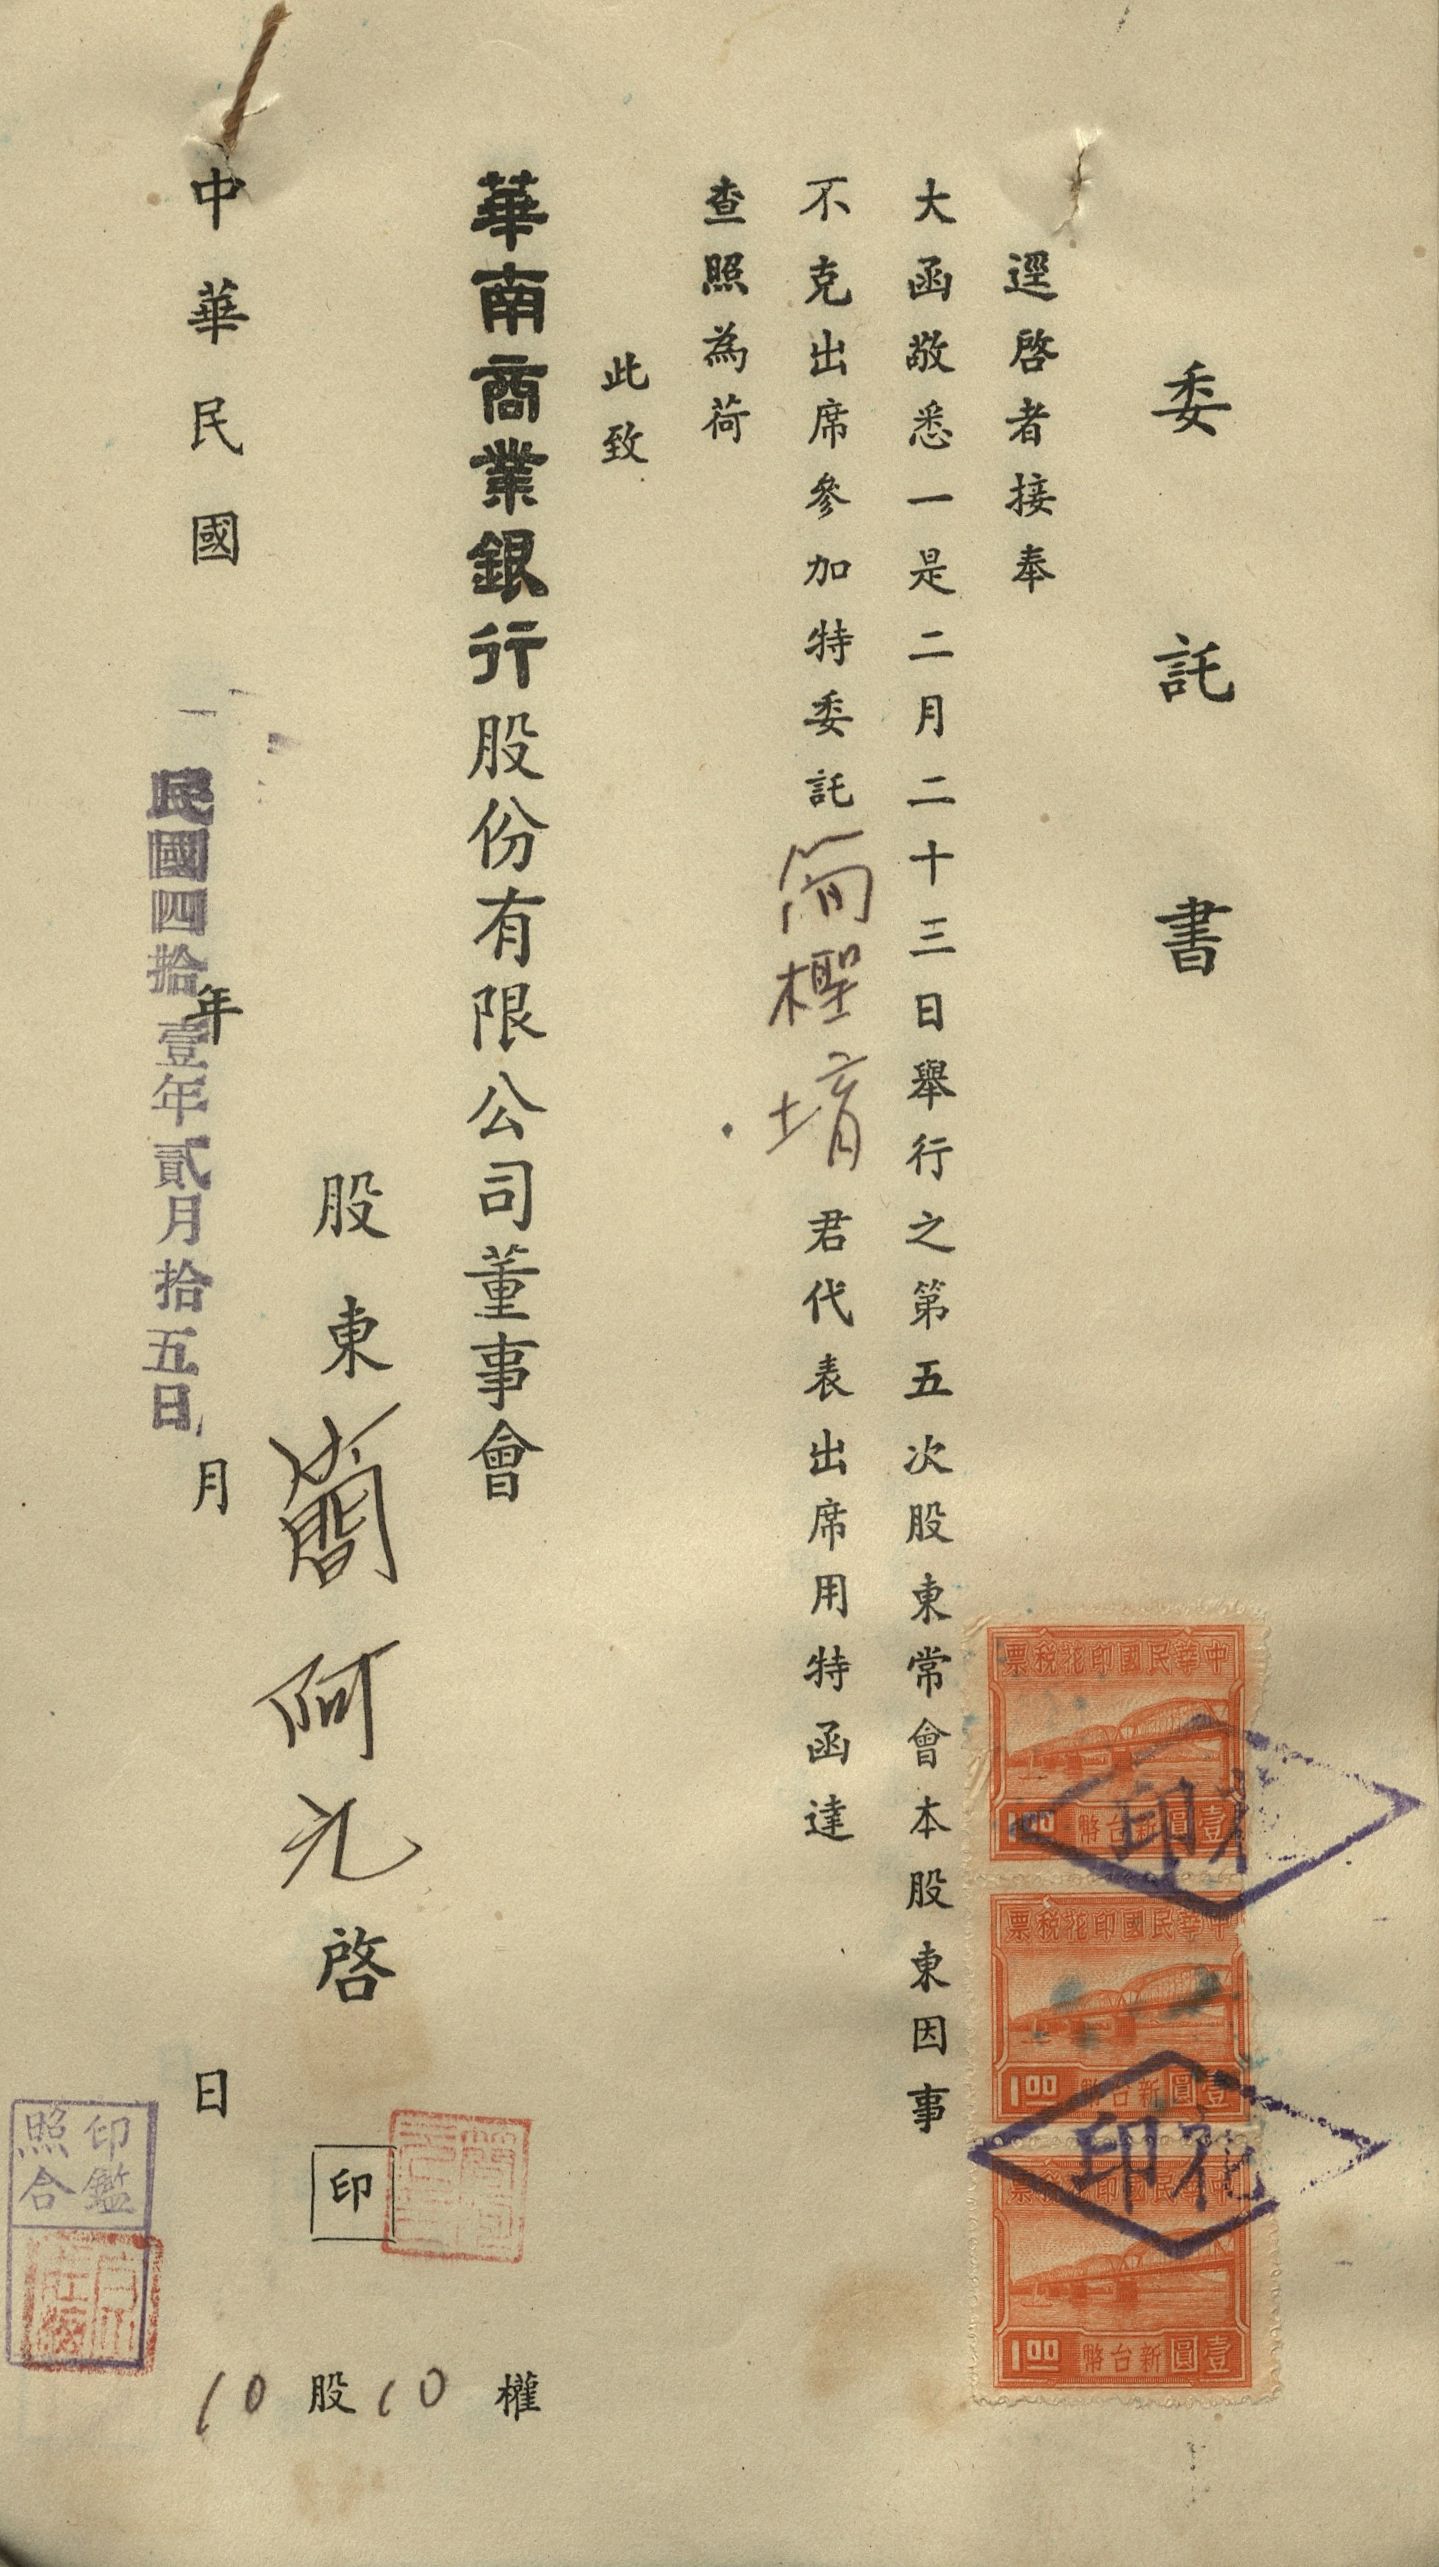 委託書
逕啓者接奉
大函敬悉一是二月二十三日舉行之第五次股東常會本股東因事
不克出席參加特委託簡檉堉君代表出席用特函達
查照為荷
此致
華南商業銀行股份有限公司董事會
股東簡阿元啓
印
中華民國 年 月 日
民國四拾壹年貳月拾五日
10股10權
印鑑
照合
中華民國印花稅票
壹圓新台幣
1.00
中華民國印花稅票
壹圓新台幣
1.00
中華民國印花稅票
壹圓新台幣
1.00
印花
印花